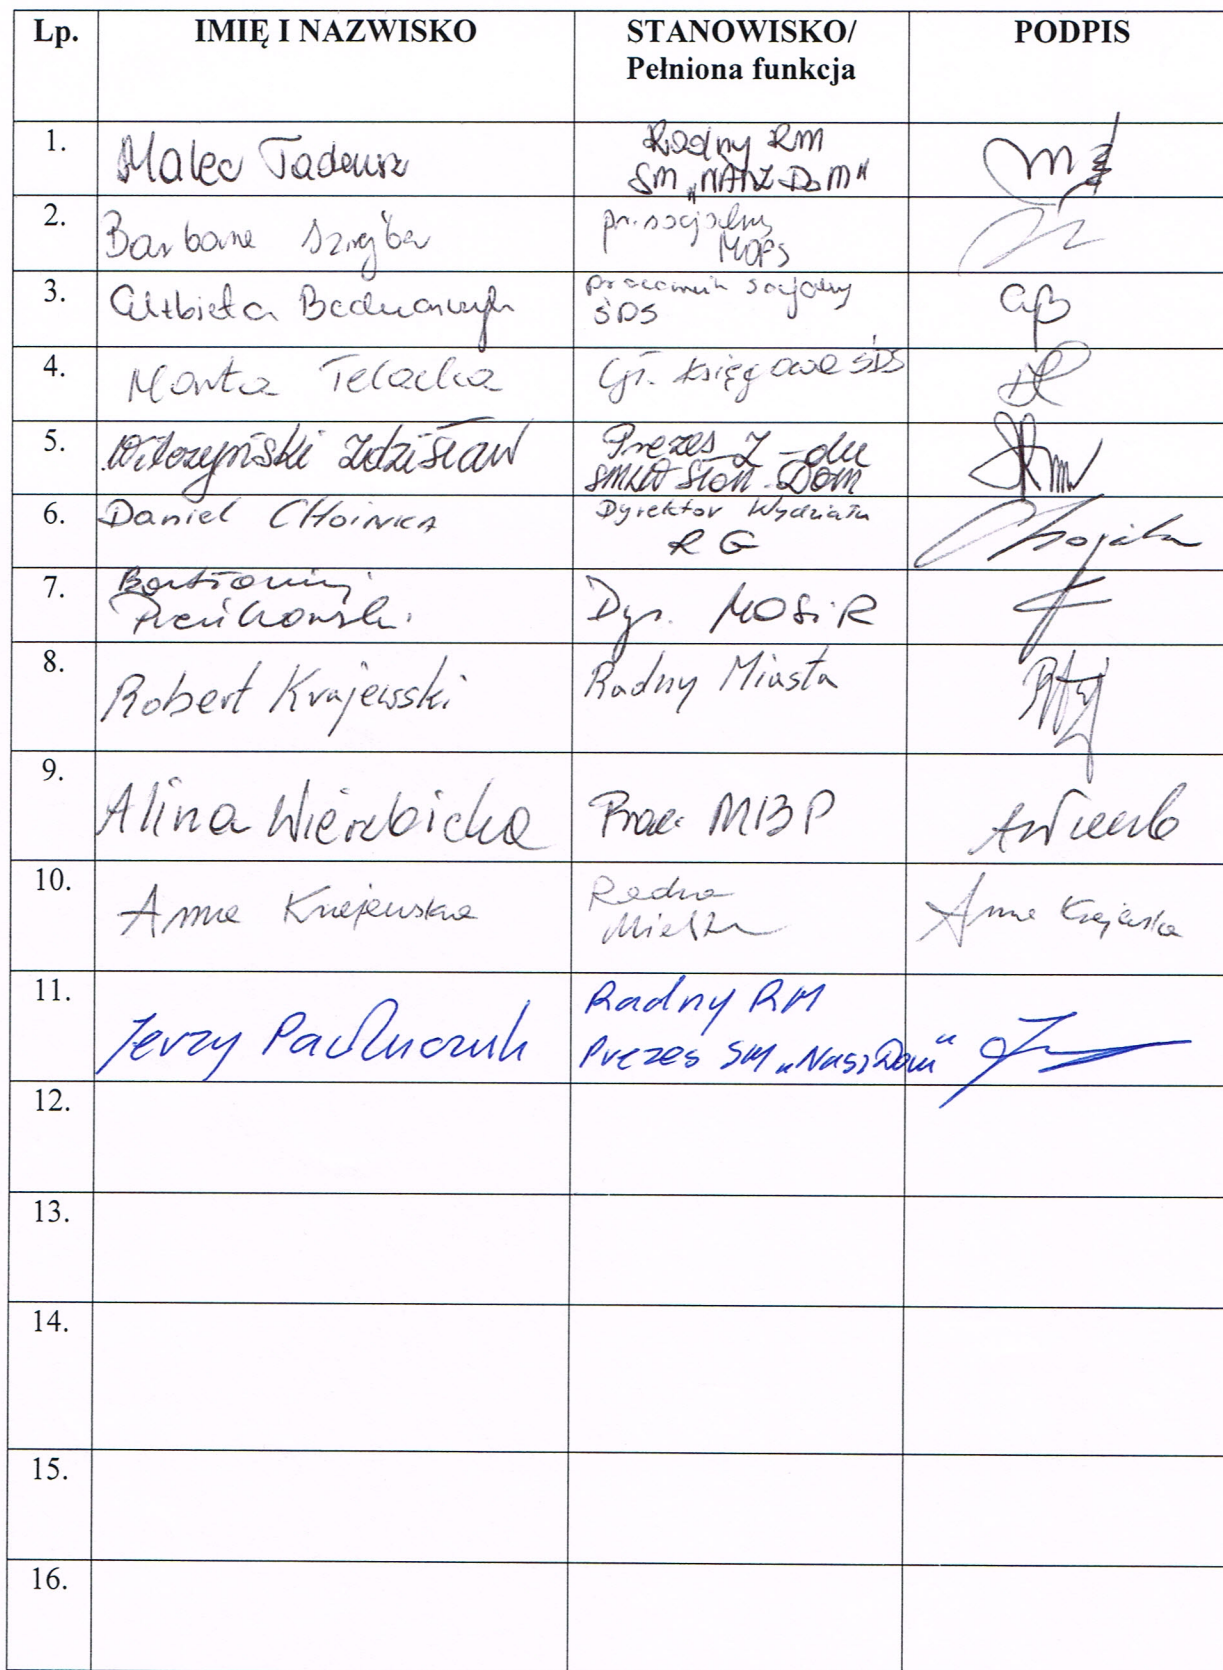 Lp. IMIĘ I NAZWISKO STANOWISKO/ PODPIS
Pełniona funkcja
1. Malec Tadeusz Radny RM
SM „NASZ DOM"
2. Barbara
pr. socjalny
MOPS
3. Elżbieta Bednarczyk pracownik socjalny
ŚDS
4. Marta Telacka Gł. księgowa ŚDS
5. Wilczyński Zdzisław Prezes Z-du
SMLW Słon. Dom
6. Daniel CHOINKA Dyrektor Wydziału
RG
Chojnka
7. Bartłomiej
Pieńkowski Dyr. MOSiR
8. Robert Krajewski Radny Miasta
9. Alina Wierzbicka Prac. MBP
10. Anna Krajewska Radna
Miasta
Anna Krajewska
11. Jerzy Radny RM
Prezes SM „Nasz Dom"
12.
13.
14.
15.
16.